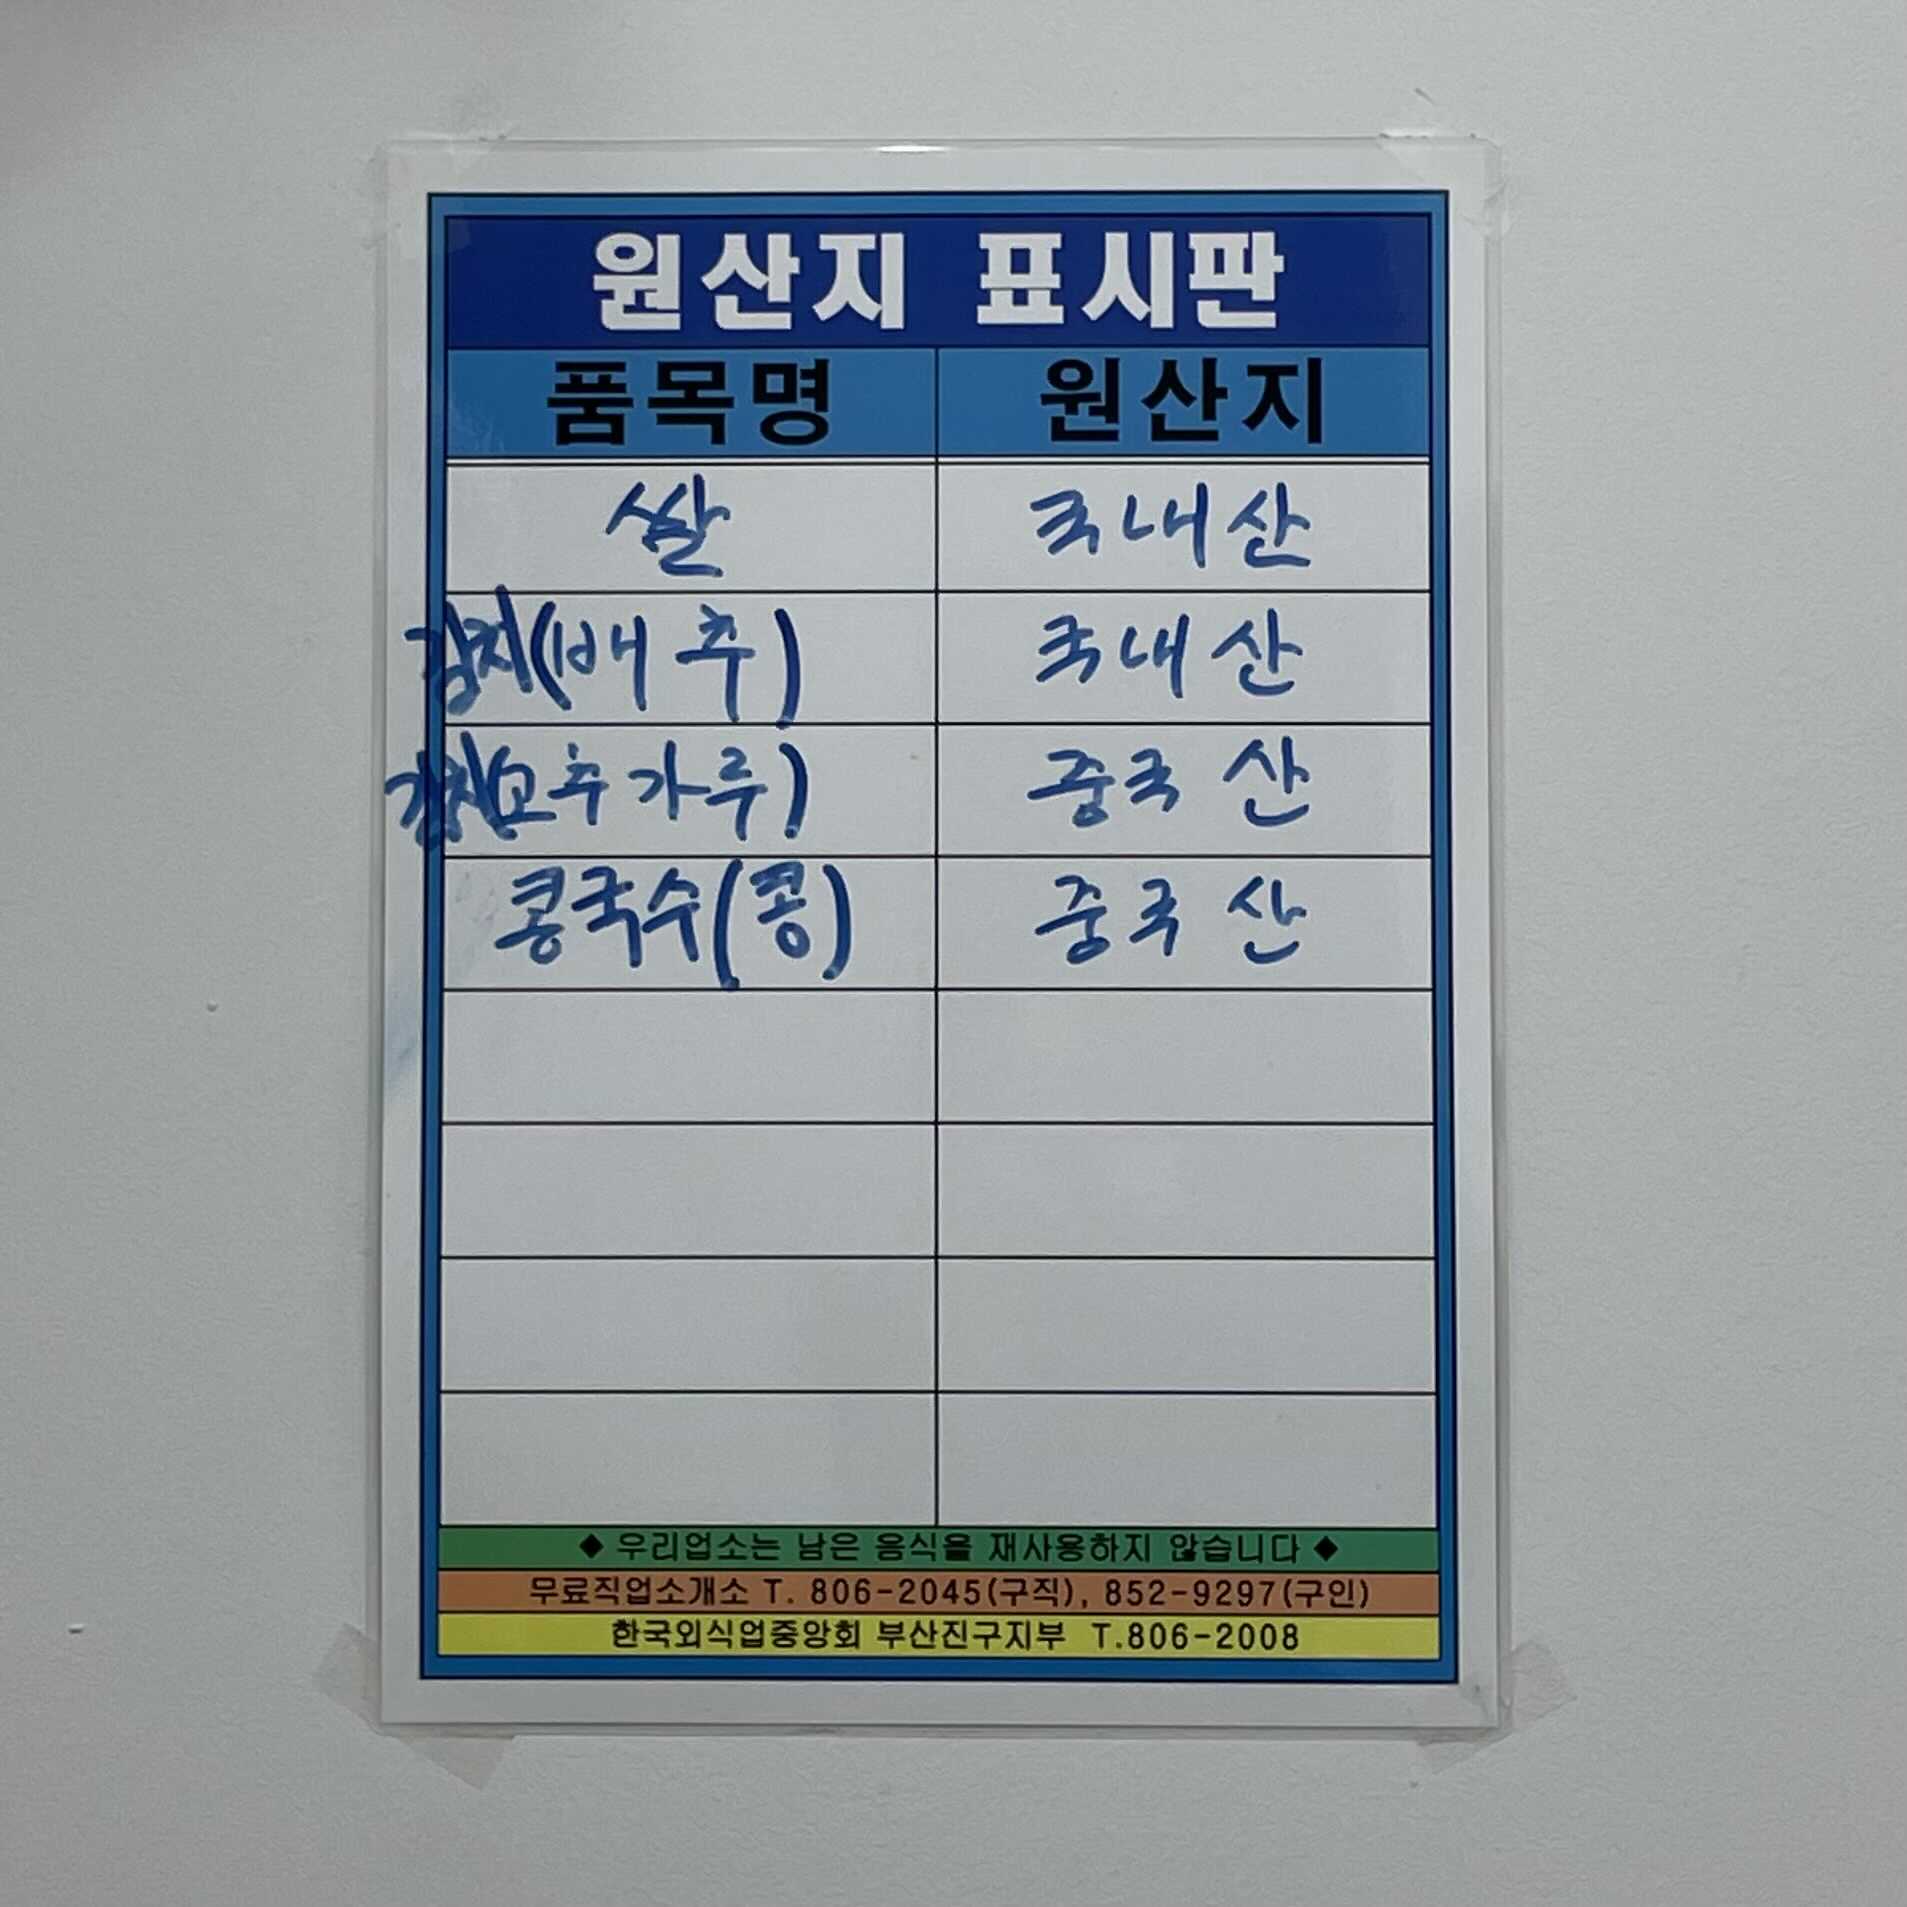 원산지 표시판
품목명 원산지
쌀 국내산
김치(배추) 국내산
김치(고추가루) 중국산
콩국수(콩) 중국산
◆ 우리업소는 남은 음식을 재사용하지 않습니다 ◆
무료직업소개소 T. 806-2045(구직), 852-9297(구인)
한국외식업중앙회 부산진구지부 T.806-2008